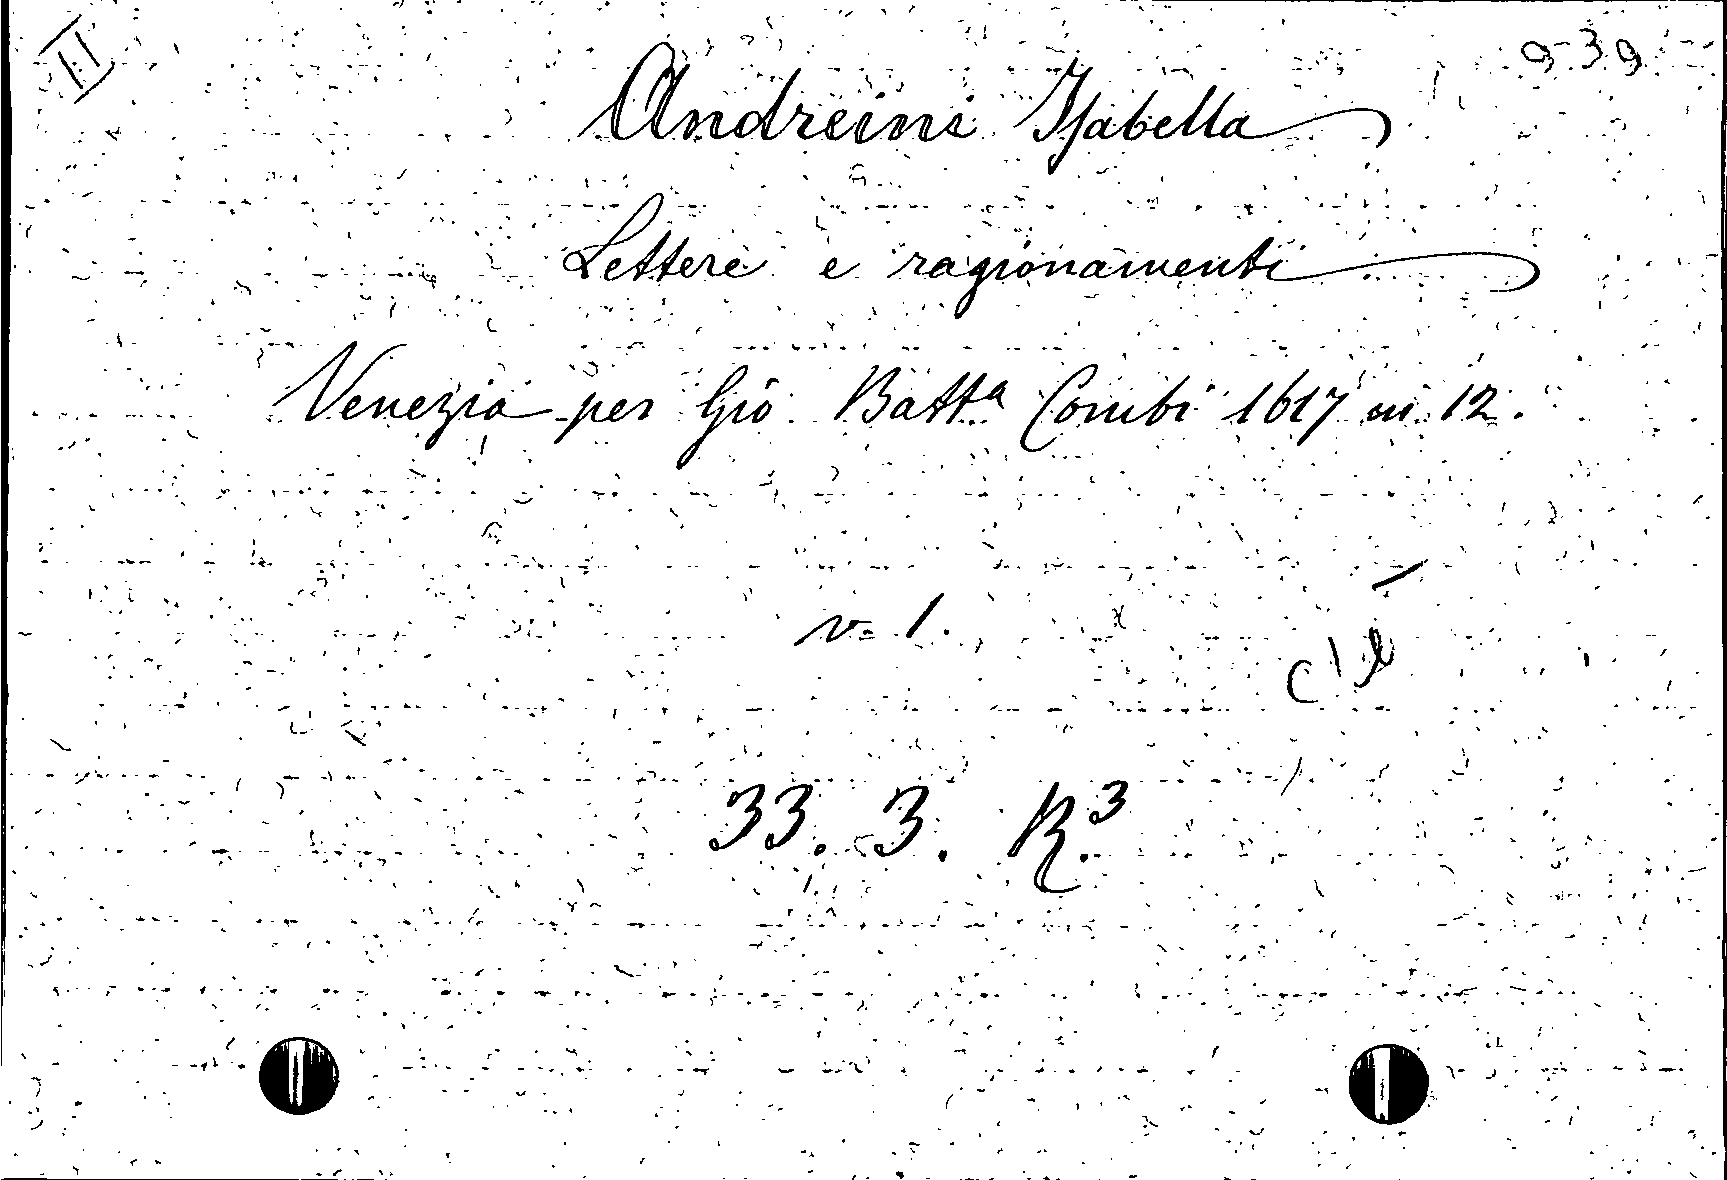 II
939
Andreini Isabella
Lettere e ragionamenti
Venezia per Gio Batt.a Combi 1617 in 12.
v. 1.
33. 3. R.3